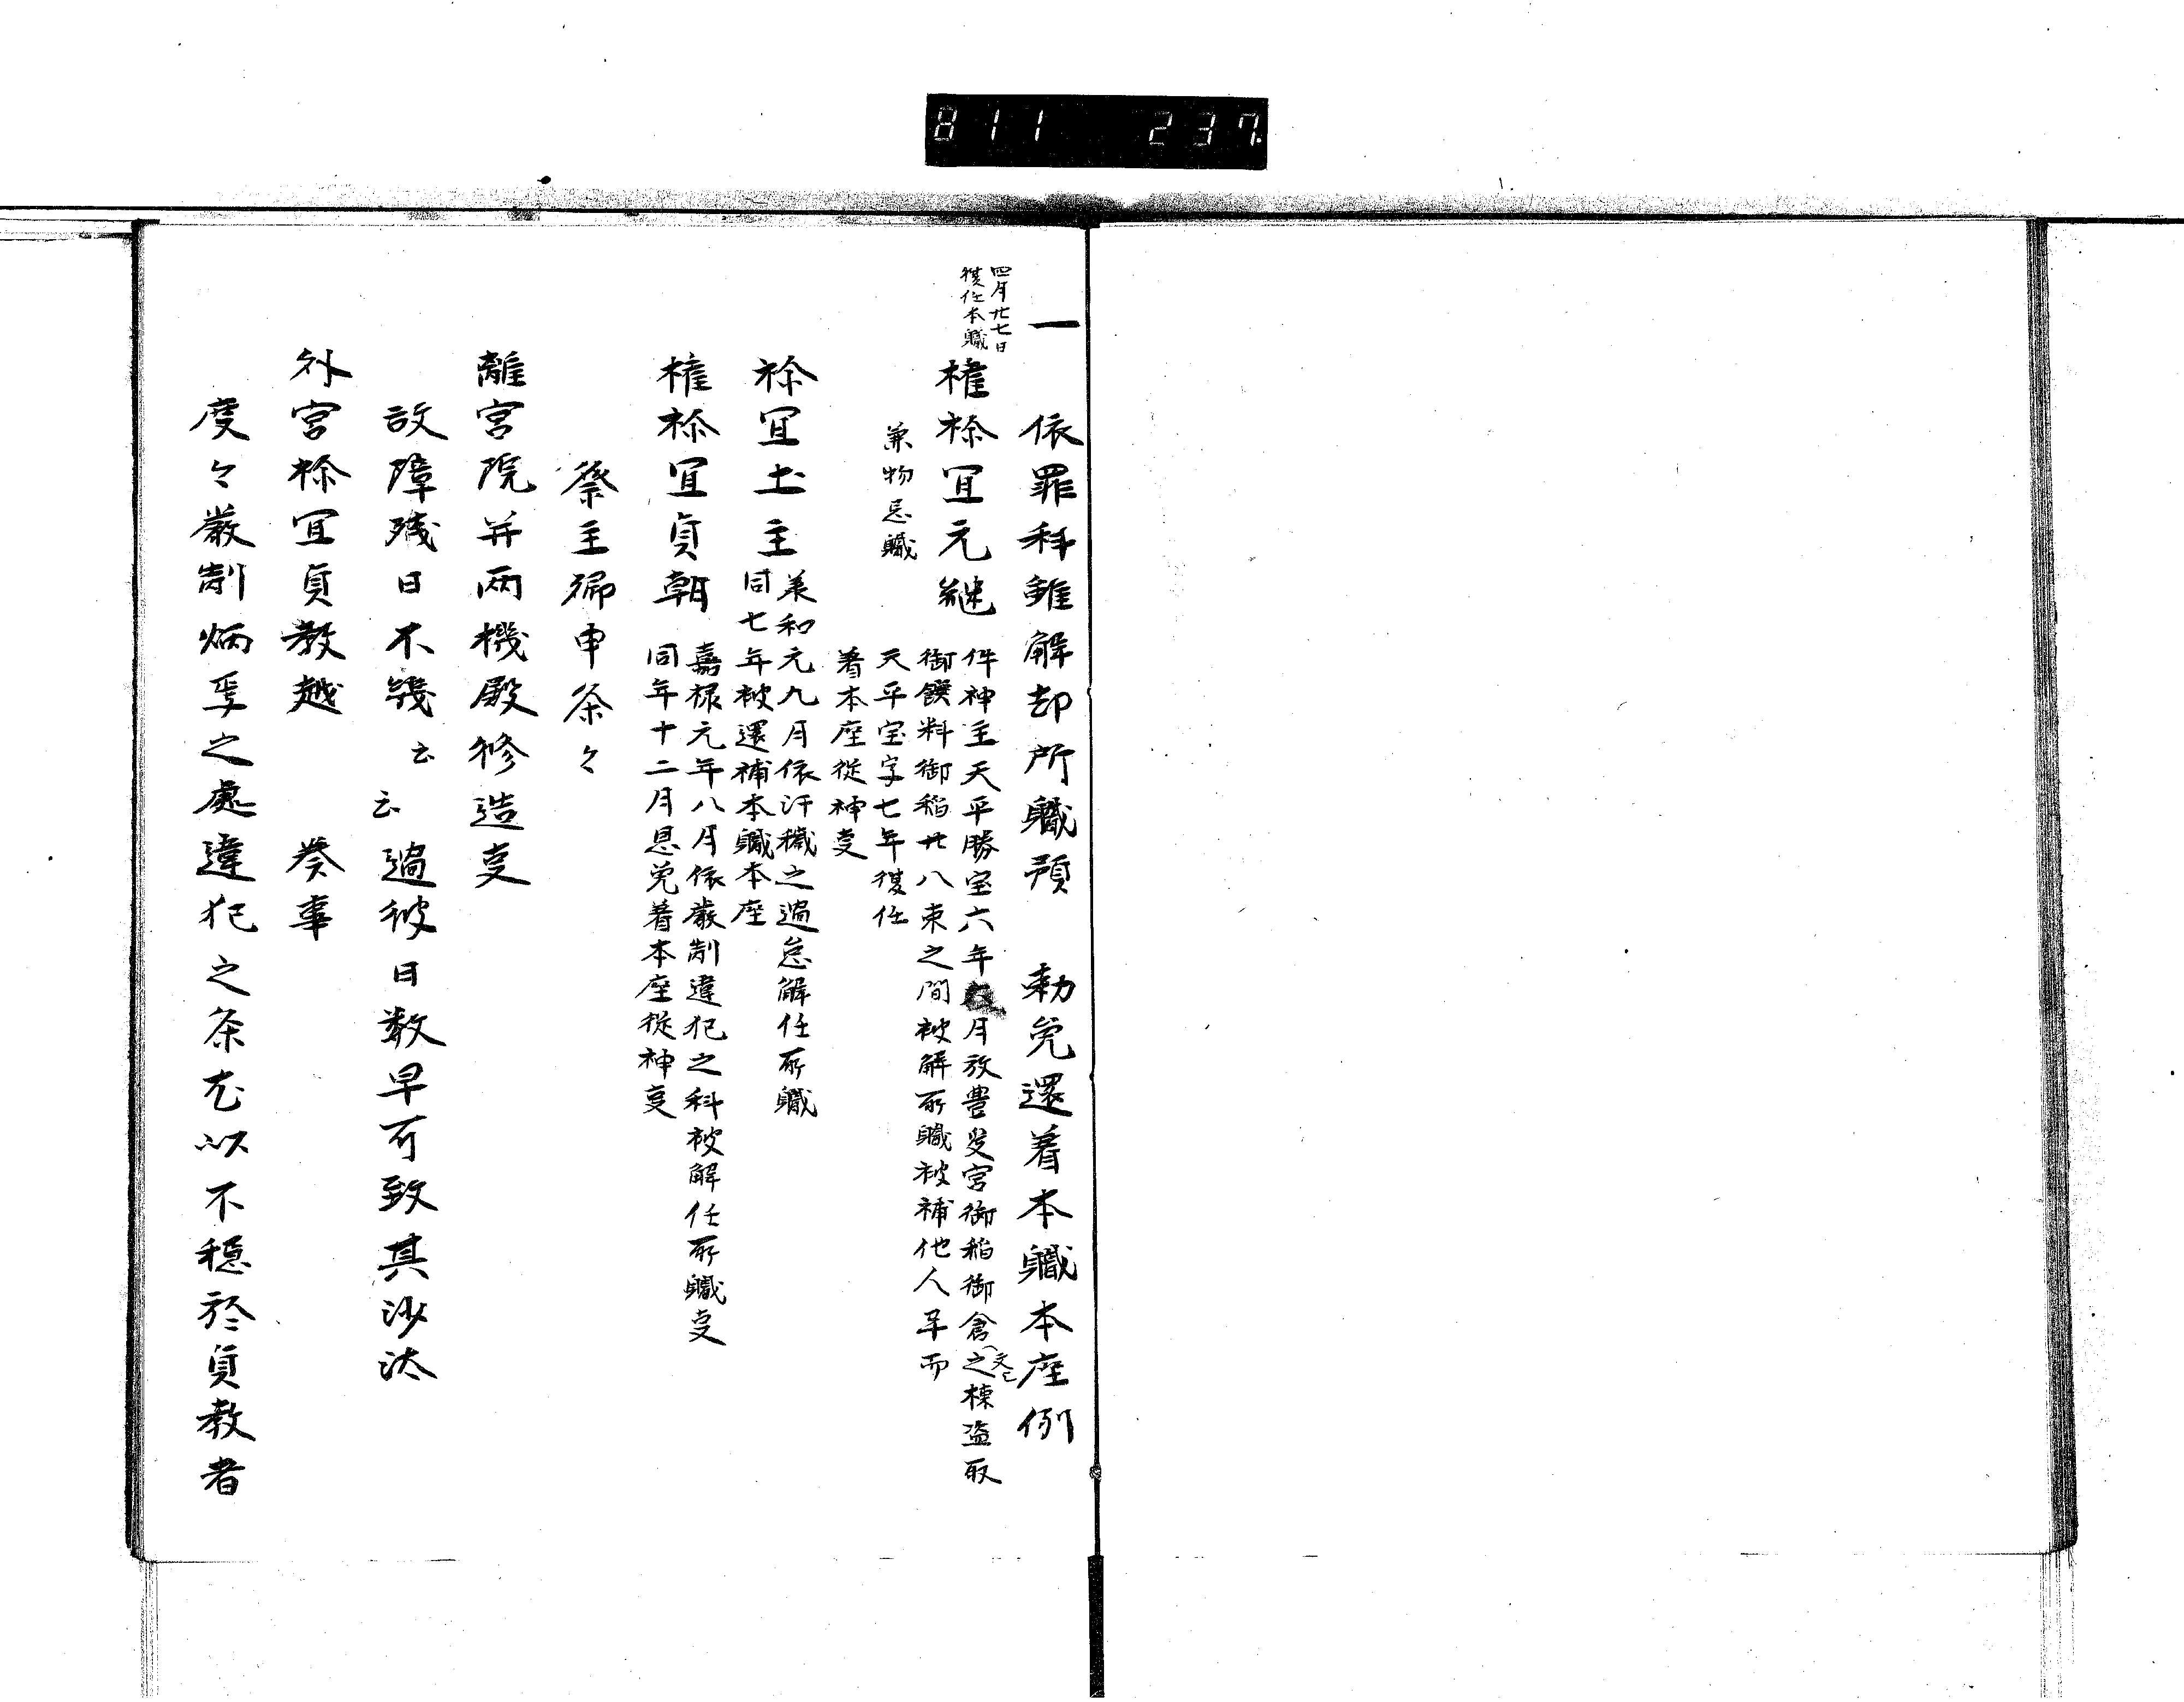 811 237
一 依罪科雖解却所職預 勅免還着本職本座例
四月廿七日
復任本職
権祢宜元継
件神主天平勝宝六年月放豊受宮御稲御倉之棟盗取
御饌料御稲廿八束之間被解所職被補他人早而
天平宝字七年復任
着本座従神事
兼物忌職
祢宜土主
承和元九月依汗穢之過怠解任所職
同七年被還補本職本座
権祢宜貞朝
嘉禄元年八月依厳制違犯之科被解任所職事
同年十二月恩免着本座従神事
祭主卿申条々
離宮院并両機殿修造事
故障残日不幾云云過彼日数早可致其沙汰
外宮祢宜貞教越 奏事
度々厳制炳焉之處違犯之条尤以不穏於貞教者